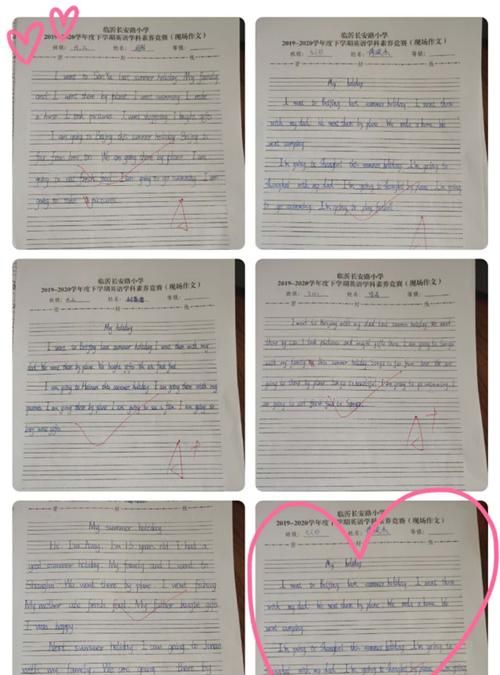 临沂长安路小学
2019-2020学年度下学期英语学科素养竞赛（现场作文）
班级： 姓名： 等级：
密 封 线
I went to SanYa last summer holiday. My family
and I went there by plane. I went swimming. I rode
a horse. I took pictures. I went shopping. I bought gifts.
I am going to Beijing this summer holiday. Beijing is
far from here. We are going there by plane. I am
going to eat fresh food. I am going to go swimming. I am
going to take pictures.
A
临沂长安路小学
2019-2020学年度下学期英语学科素养竞赛（现场作文）
班级： 姓名： 等级：
密 封 线
My holiday
I went to Beijing last summer holiday. I went there
with my dad. We went there by plane. We rode a horse. We
went camping.
I'm going to Shanghai this summer holiday. I'm going to
Shanghai with my dad. I'm going to Shanghai by plane. I'm going
to go swimming. I'm going to
A
临沂长安路小学
2019-2020学年度下学期英语学科素养竞赛（现场作文）
班级： 姓名： 等级：
密 封 线
My holiday
I went to Beijing last summer holiday. I went there with my
dad. We went there by plane. We bought gifts. We ate fresh food.
I am going to Hainan this summer holiday. I am going there with my
parents. I am going there by plane. I am going to see a film. I am going to
buy some gifts.
A+
临沂长安路小学
2019-2020学年度下学期英语学科素养竞赛（现场作文）
班级： 姓名： 等级：
密 封 线
I went to Beijing with my dad last summer holiday. We went
there by car. I took pictures and bought gifts there. I am going to
with my family this summer holiday. is far from here. We are
going to there by plane. is beautiful. I am going to go swimming. I
am going to eat fresh food in
A+
My summer holiday
Hi, I'm Amy. I'm 13 years old. I had a
good summer holiday. My family and I went to
Shanghai. We went there by plane. I went fishing.
My mother ate fresh food. My father bought gifts.
I was happy.
Next summer holiday I am going to
with my family. We are going there by
临沂长安路小学
2019-2020学年度下学期英语学科素养竞赛（现场作文）
班级： 姓名： 等级：
密 封 线
My holiday
I went to Beijing last summer holiday. I went there
with my dad. We went there by plane. We rode a horse. We
went camping.
I'm going to Shanghai this summer holiday. I'm going to
Shanghai with my dad. I'm going to Shanghai by plane. I'm going